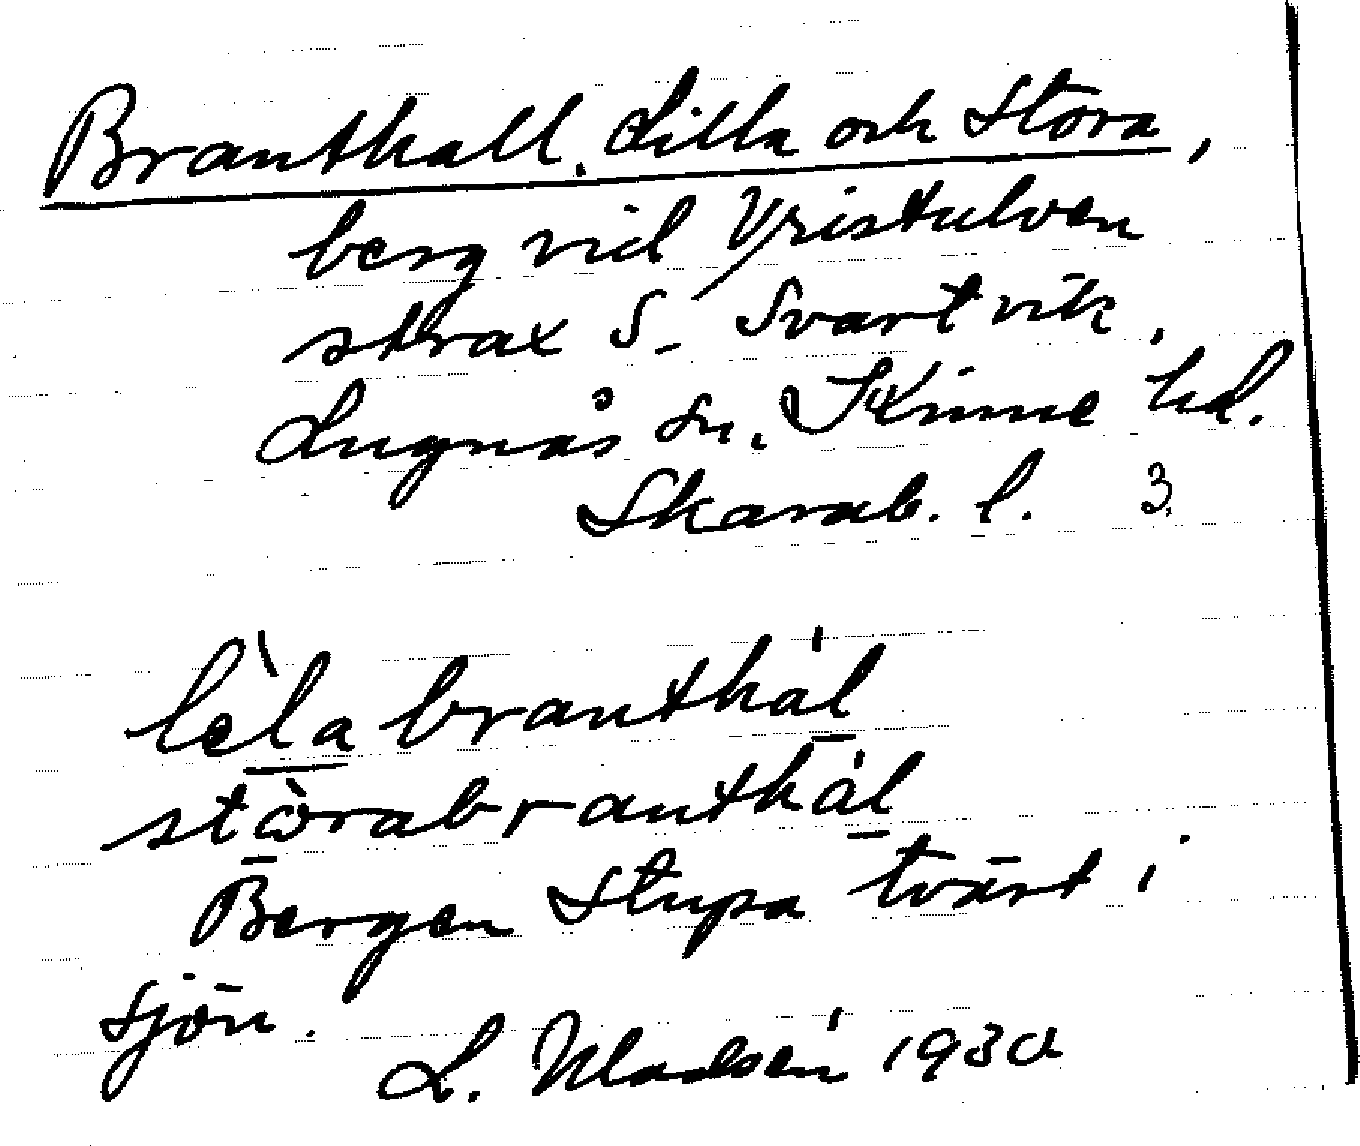 Branthall, Lilla och Stora,
berg vid Vristulven
strax S. Svartvik,
Lugnås sn. Kinne hd.
Skarab. l. 3.
lèla branthál
stòrabranthál
Bergen stupa tvärt i
sjön.
L. 1930